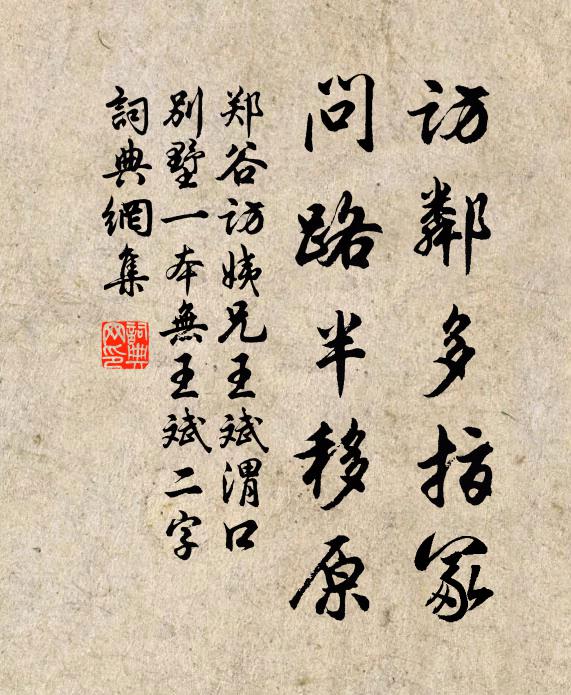 訪鄰多指冢
問路半移原
郑谷訪姨兄王斌渭口
别墅一本無王斌二字
詞典網集
詞典网印